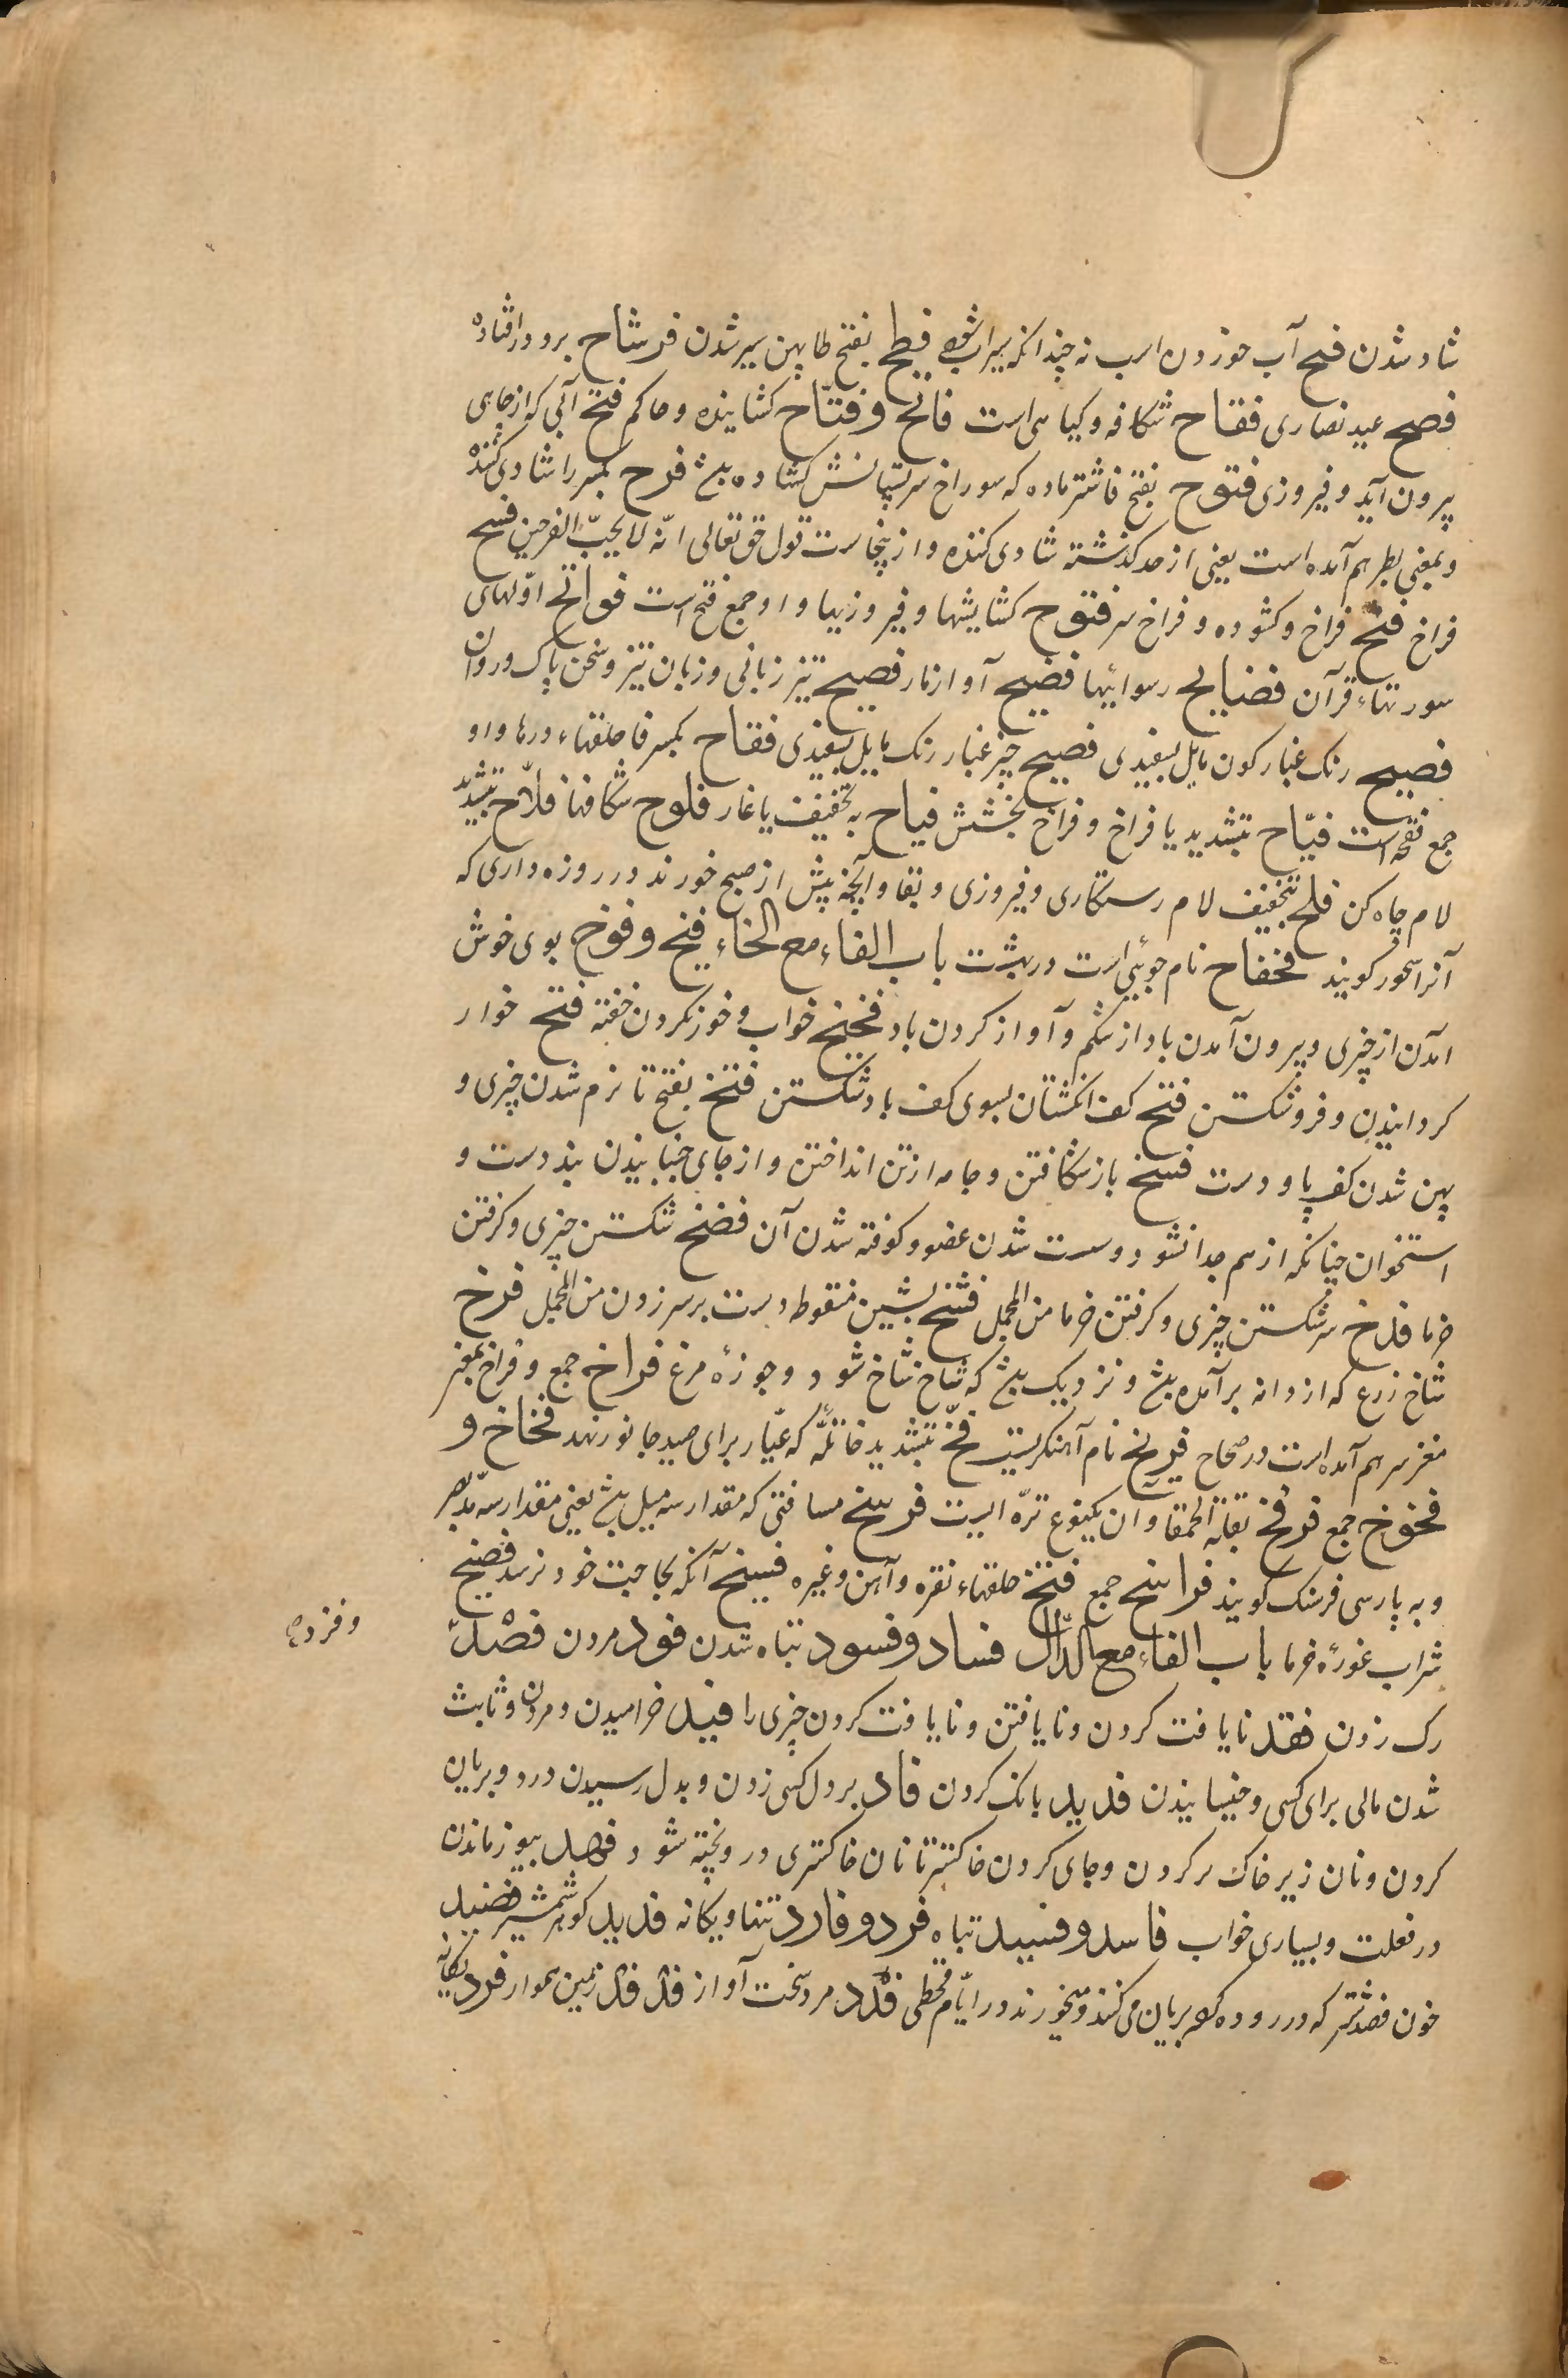 شاد شدن فتح آب خوردن اسب نه چندانکه سیراب شود فطح بفتح طا پهن سر شدن فرشاح برو درافتاده
فصح عید نصاری فقاح شکافه و گیاهی است فاتح و فتّاح کشاینده و حاکم فتح آبی که از جایی
بیرون آید و فیروزی فتوح بفتح فا شتر ماده که سوراخ سر پستانش کشاده باشد فرح بکسر را شادی کننده
و بمعنی بطر هم آمده است یعنی از حد گذشته شادی کننده و ازینجاست قول حق تعالی انّه لا یحبّ الفرحین فسح
فراخ فتح فراخ و کشوده و فراخ سر فتوح کشایشها و فیروزیها و او جمع فتح است فواتح اوّلهای
سورتهاء قرآن فضایح رسوائیها فضیح آواز مار فصیح تیز زبانی و زبان تیز و سخن پاک و روان
فصیح رنک غبار کون مایل بسفیدی فصیح چیز غبار رنک مایل بسفیدی فقاح بکسر فا حلقهاء درها و او
جمع فقحه است فیّاح بتشدید یا فراخ و فراخ بخشش فیاح به تخفیف یا غار فلوح شکافها فلّاح بتشدید
لام چاه کن فلح بتخفیف لام رستکاری و فیروزی و بقا و آنچه پیش از صبح خورند در روزه داری که
آنرا سحور کویند فخفاح نام جوئی است در بهشت باب الفاء مع الخاء فیخ و فوخ بوی خوش
آمدن از چیزی و بیرون آمدن باد از شکم و آواز کردن باد فخیخ خواب و خوز نکردن خفته فتخ خوار
کردانیدن و فروشکستن فتخ کف انکشتان بسوی کف باد شکستن فتخ بفتح تا نرم شدن چیزی و
پهن شدن کف پا و دست فسخ باز شکافتن و جامه از تن انداختن و از جای جنبانیدن بند دست و
استخوان چنانکه از هم جدا نشود و سست شدن عضو و کوفته شدن آن فضخ شکستن چیزی و کرفتن
خرما فدخ سر شکستن چیزی و کرفتن خرما من المجمل فشخ بشین منقوطه دست بر سر زدن من المجمل فرخ
شاخ زرع که از دانه برآمده باشد و نزدیک باشد که شاخ شاخ شود و جوزهٔ مرغ فراخ جمع و فراخ بمعنی
مغز سر هم آمده است در صحاح فریخ نام آهنکریست فخّ بتشدید خا تلّه که عیّار برای صید جانور نهد فخاخ و
فخوخ جمع فرفخ بقلة الحمقا و آن یکنوع ترّه ایست فرسخ مسافتی که مقدار سه میل باشد یعنی مقدار سه مدّ بصر
و به پارسی فرسنک کویند فراسخ جمع فتخ حلقهاء نقره و آهن و غیره فسیخ آنکه بحاجت خود نرسد فضیخ
شراب غورهٔ خرما باب الفاء مع الدّال فساد و فسود تباه شدن فود مردن فصد
رک زدن فقد نایافت کردن و نایافتن و نایافت کردن چیزی را فید خرامیدن و مردن و ثابت
شدن مالی برای کسی و خیسانیدن فدید بانک کردن فاد بر دل کسی زدن و بدل رسیدن درد و بریان
کردن و نان زیر خاکستر کردن و جای کردن خاکستر تا نان خاکستری در و پخته شود فهد یوز ماندن
در غفلت و بسیاری خواب فاسد و فسید تباه فرد و فارد تنها و یکانه فدید کوهر شمشیر فصید
خون فصد شتر که در روده کرده بریان می کنند و میخورند در ایّام قحطی فدّد مرد سخت آواز فدفد زمین هموار فرد یکانه
و فزده